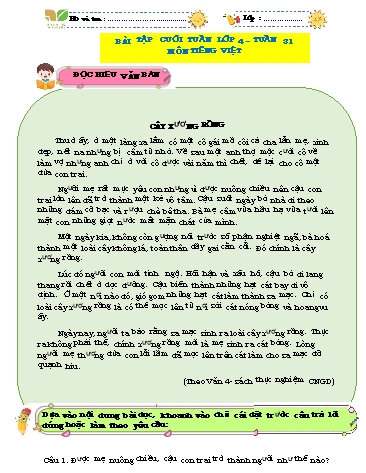 Họ và tên :
Lớp :
BÀI TẬP CUỐI TUẦN LỚP 4 – TUẦN 31
MÔN TIẾNG VIỆT
ĐỌC HIỂU VĂN BẢN
CÂY XƯƠNG RỒNG
Thuở ấy, ở một làng xa lắm có một cô gái mồ côi cả cha lẫn mẹ, xinh
đẹp, nết na nhưng bị câm từ nhỏ. Về sau một anh thợ mộc cưới cô về
làm vợ nhưng anh chỉ ở với cô được vài năm thì chết, để lại cho cô một
đứa con trai.
Người mẹ rất mực yêu con nhưng vì được nuông chiều nên cậu con
trai lớn lên đã trở thành một kẻ vô tâm. Cậu suốt ngày bỏ nhà đi theo
những đám cờ bạc và rượu chè bê tha. Bà mẹ câm vừa hầu hạ vừa tưới lên
mặt con những giọt nước mắt mặn chát của mình.
Một ngày kia, không còn gượng nổi trước số phận nghiệt ngã, bà hoá
thành một loài cây không lá, toàn thân đầy gai cằn cỗi. Đó chính là cây
xương rồng.
Lúc đó người con mới tỉnh ngộ. Hối hận và xấu hổ, cậu bỏ đi lang
thang rồi chết ở dọc đường. Cậu biến thành những hạt cát bay đi vô
định. Ở một nơi nào đó, gió gom những hạt cát làm thành sa mạc. Chỉ có
loài cây xương rồng là có thể mọc lên từ nơi sỏi cát nóng bỏng và hoang vu
ấy.
Ngày nay, người ta bảo rằng sa mạc sinh ra loài cây xương rồng. Thực
ra không phải thế, chính xương rồng mới là mẹ sinh ra cát bỏng. Lòng
người mẹ thương đứa con lỗi lầm đã mọc lên trên cát làm cho sa mạc đỡ
quạnh hiu.
(Theo Văn 4- sách thực nghiệm CNGD)
Dựa vào nội dung bài đọc, khoanh vào chữ cái đặt trước câu trả lời
đúng hoặc làm theo yêu cầu:
Câu 1. Được mẹ nuông chiều, cậu con trai trở thành người như thế nào?